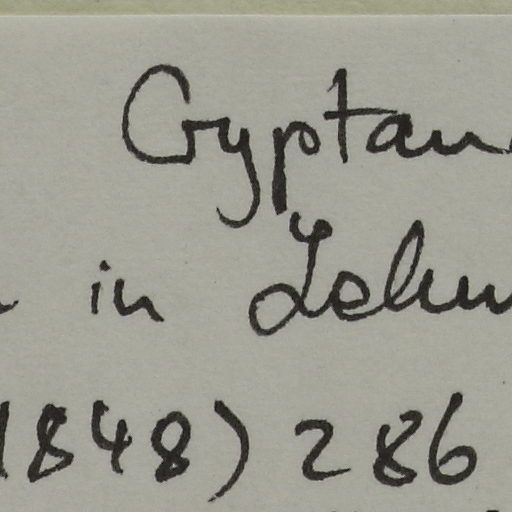 Cryptan
in Lehm
1848) 286